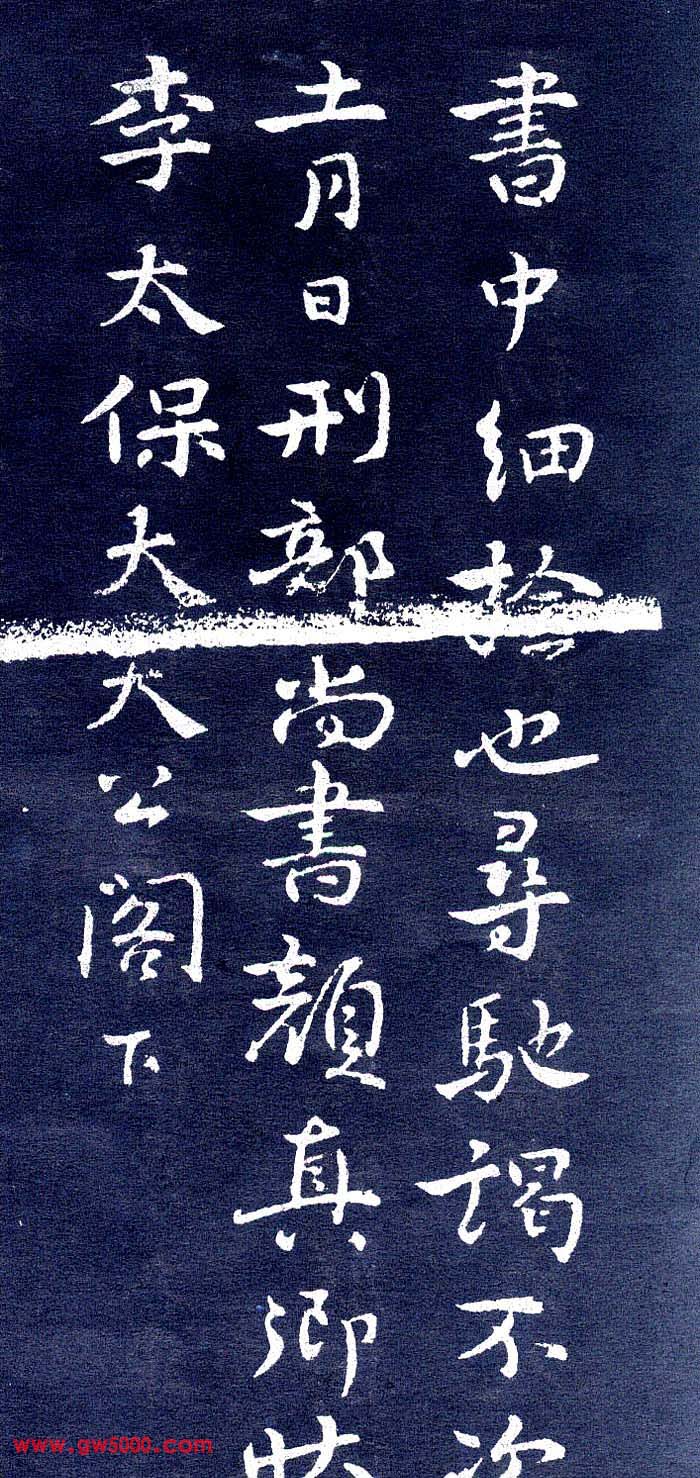 書中細捡也尋馳謁不次
十一月日刑部尚書顏真卿狀
李太保大夫公閣下
www.gw5000.com